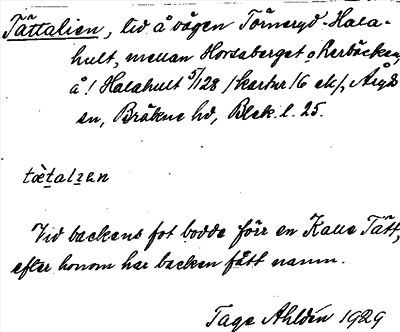 Tättalien, lid å vägen Törneryd - Hala-
hult, mellan Horsaberget o. Lerbäcken,
å! Halahult 5/128 /kartur/6 ek/, Åryds
en, Bräkne hd, Blek. l. 25.
tæ̀talɪən
Vid backens fot bodde förr en Kalle Tätt,
efter honom har backen fått namn.
Tage Ahldén 1929